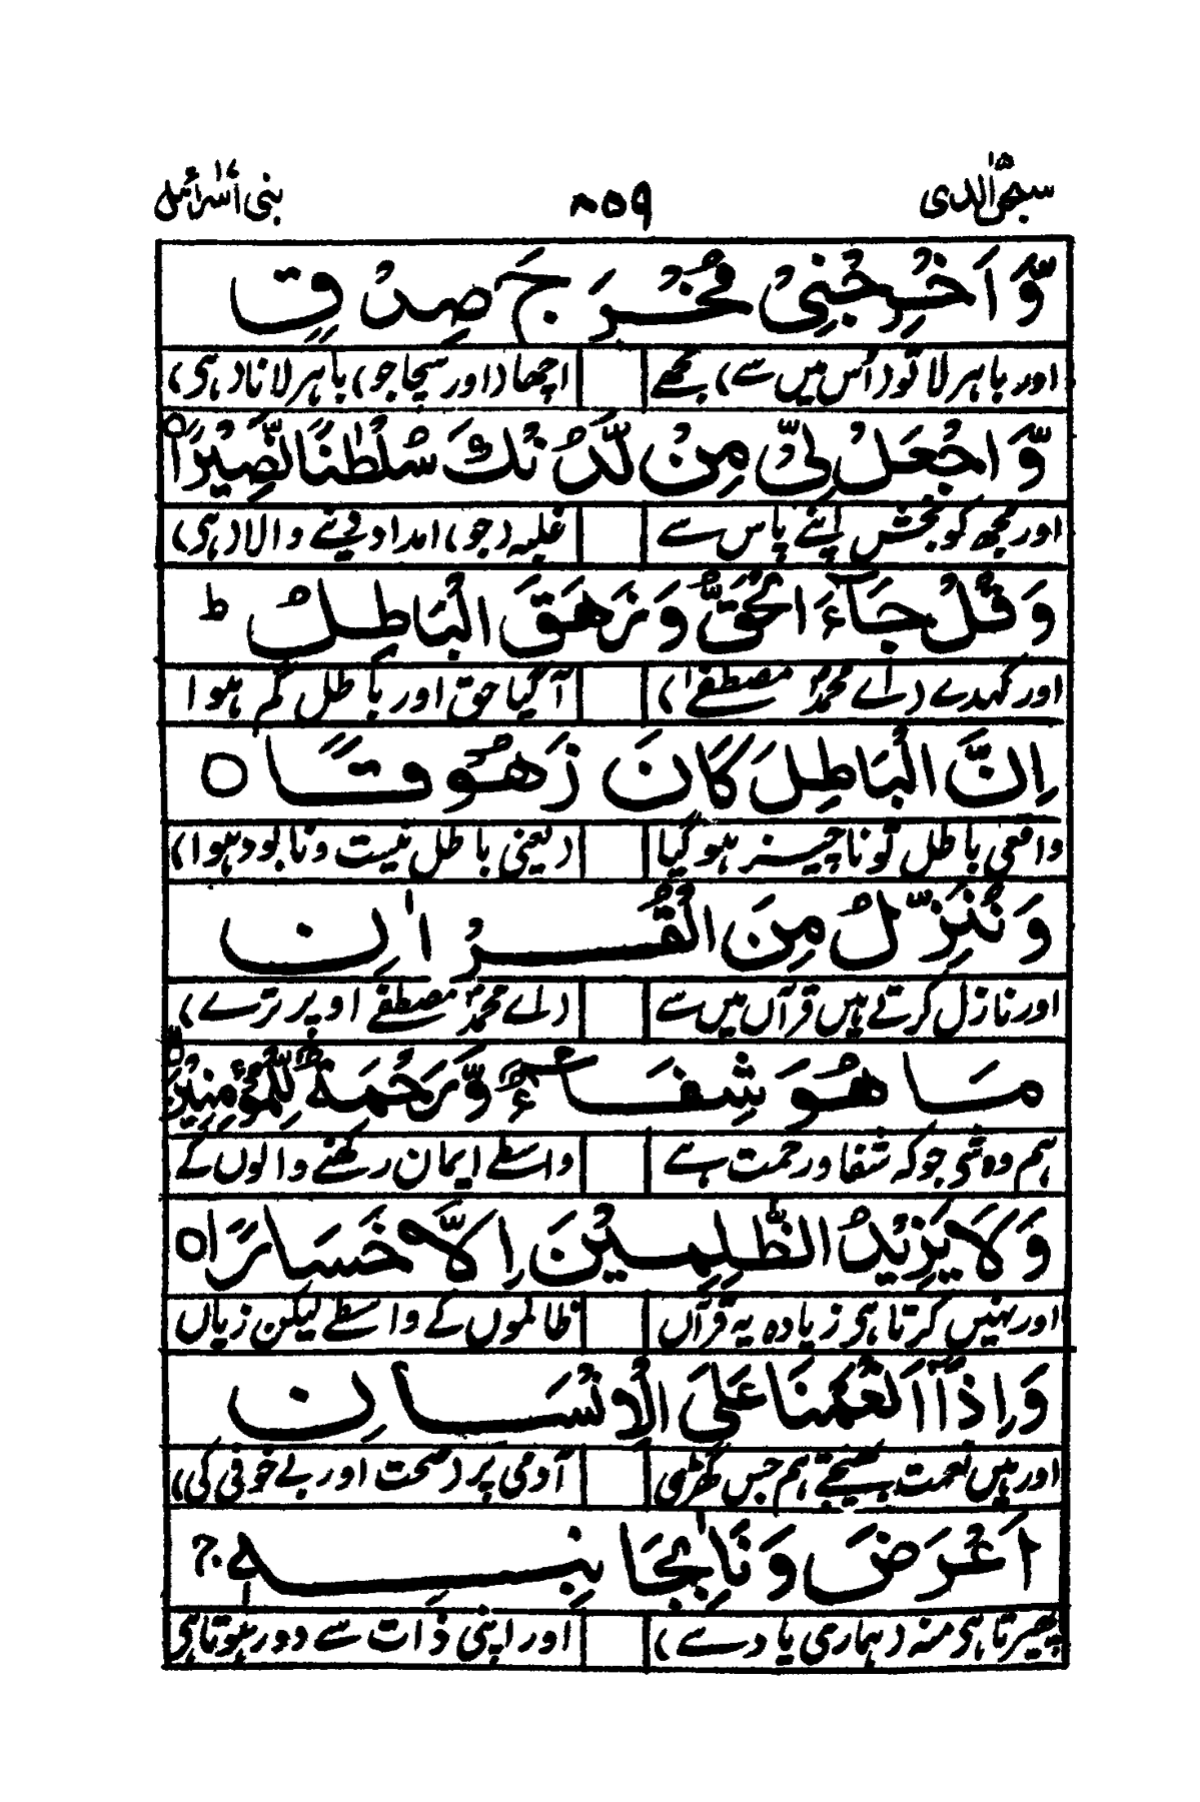 سبحٰن الذی ١٥ ٨٥٩ بنی اسرآئیل ١٧
وَّاَخْرِجْنِیْ مُخْرَجَ صِدْقٍ
اور باہر لا تو (اُس میں سے) مجھے اچھا (اور سچا جو) باہر لانا (ہی)
وَّاجْعَلْ لِّیْ مِنْ لَّدُنْكَ سُلْطٰنًا نَّصِیْرًا ○
اور مجھ کو بخش اپنے پاس سے غلبہ (جو) امداد دینے والا (ہی)
وَقُلْ جَآءَ الْحَقُّ وَزَهَقَ الْبَاطِلُ ؕ
اور کہدے (اے محمدؐ مصطفےٰ) آ گیا حق اور باطل گم ہوا
اِنَّ الْبَاطِلَ كَانَ زَهُوْقًا ○
واقعی باطل تو ناچیز ہو گیا (یعنی باطل نیست و نابود ہوا)
وَنُنَزِّلُ مِنَ الْقُرْاٰنِ
اور نازل کرتے ہیں قرآں میں سے (اے محمدؐ مصطفےٰ اوپر ترے)
مَا هُوَ شِفَآءٌ وَّرَحْمَةٌ لِّلْمُؤْمِنِیْنَ
ہم وہ شی جو کہ شفا و رحمت ہے واسطے ایمان رکھنے والوں کے
وَلَا یَزِیْدُ الظّٰلِمِیْنَ اِلَّا خَسَارًا ○
اور نہیں کرتا ہی زیادہ یہ قرآں ظالموں کے واسطے لیکن زیاں
وَاِذَآ اَنْعَمْنَا عَلَی الْاِنْسَانِ
اور ہیں نعمت بھیجتے ہم جس گھڑی آدمی پر (صحت اور بے خوفی کی)
اَعْرَضَ وَنَاٰ بِجَانِبِهٖ ۚ
پھیرتا ہی منہ (ہماری یاد سے) اور اپنی ذات سے دور ہوتا ہی